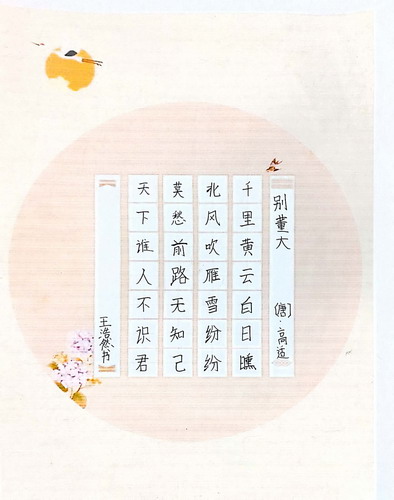 别董大
〔唐〕·高适
千里黄云白日曛
北风吹雁雪纷纷
莫愁前路无知己
天下谁人不识君
王浩然书